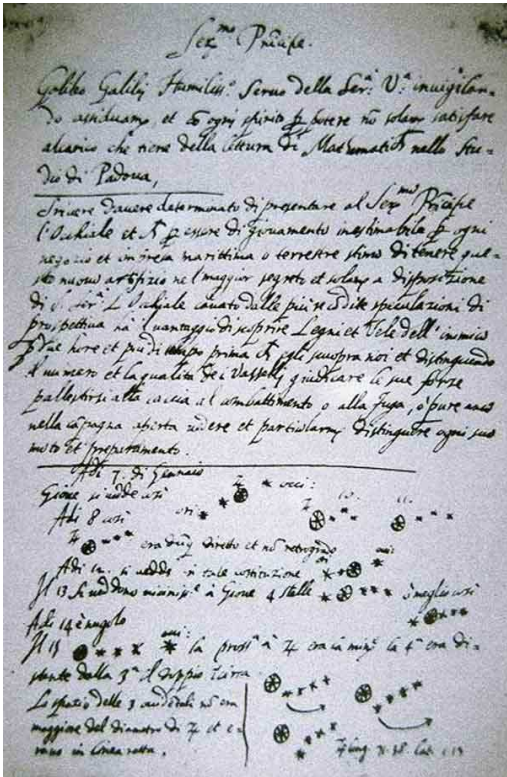 Ser.mo Principe.
Galileo Galilei Humiliss.o Servo della Ser.a V.a invigilan-
do assiduam.te et cō ogni spirito ꝑ potere nō solam satisfare
alcarico che tiene della lettura di Matematich nello Stu-
dio di Padova,
Scrivere davere determinato di presentare al Ser.mo Prīcipe
l'Ochiale et ꝑ essere di giovamento inestimabile ꝑ ogni
negozio et impresa marittima o terrestre stimo di tenere que-
sto nuovo artifizio nel maggior segreto et solam a disposizione
di S. Ser.a L'Ochiale cavato dalle più recōdite speculazioni di
prospettiva ha il vantaggio di scoprire Legni et Vele dell'inimico
ꝑ due hore et più di tempo prima ch'egli scuopra noi et distinguendo
il numero et la qualità dei Vasselli giudicare le sue forze
pallestirsi alla caccia al combattimento o alla fuga, o pure anco
nella cāpagna aperta vedere et particolarm distinguere ogni suo
moto et preparamento.
Adi 7. di Gennaio
Gioue si uedde così
Adi 8 così
era dūq diretto et nō retrogrado
Adi 12. si uedde in tale costituzione
Il 13 si ueddono minimiss.e à Gioue 4 stelle è meglio così
Adi 14 è nugolo
Il 15 la pross.a à ♃ era la min.e la 4.a era di-
stante dalla 3.a il doppio circa
Lo spatio delle 3 occidentali nō era
maggiore del diametro di ♃ et e-
rano in linea retta.